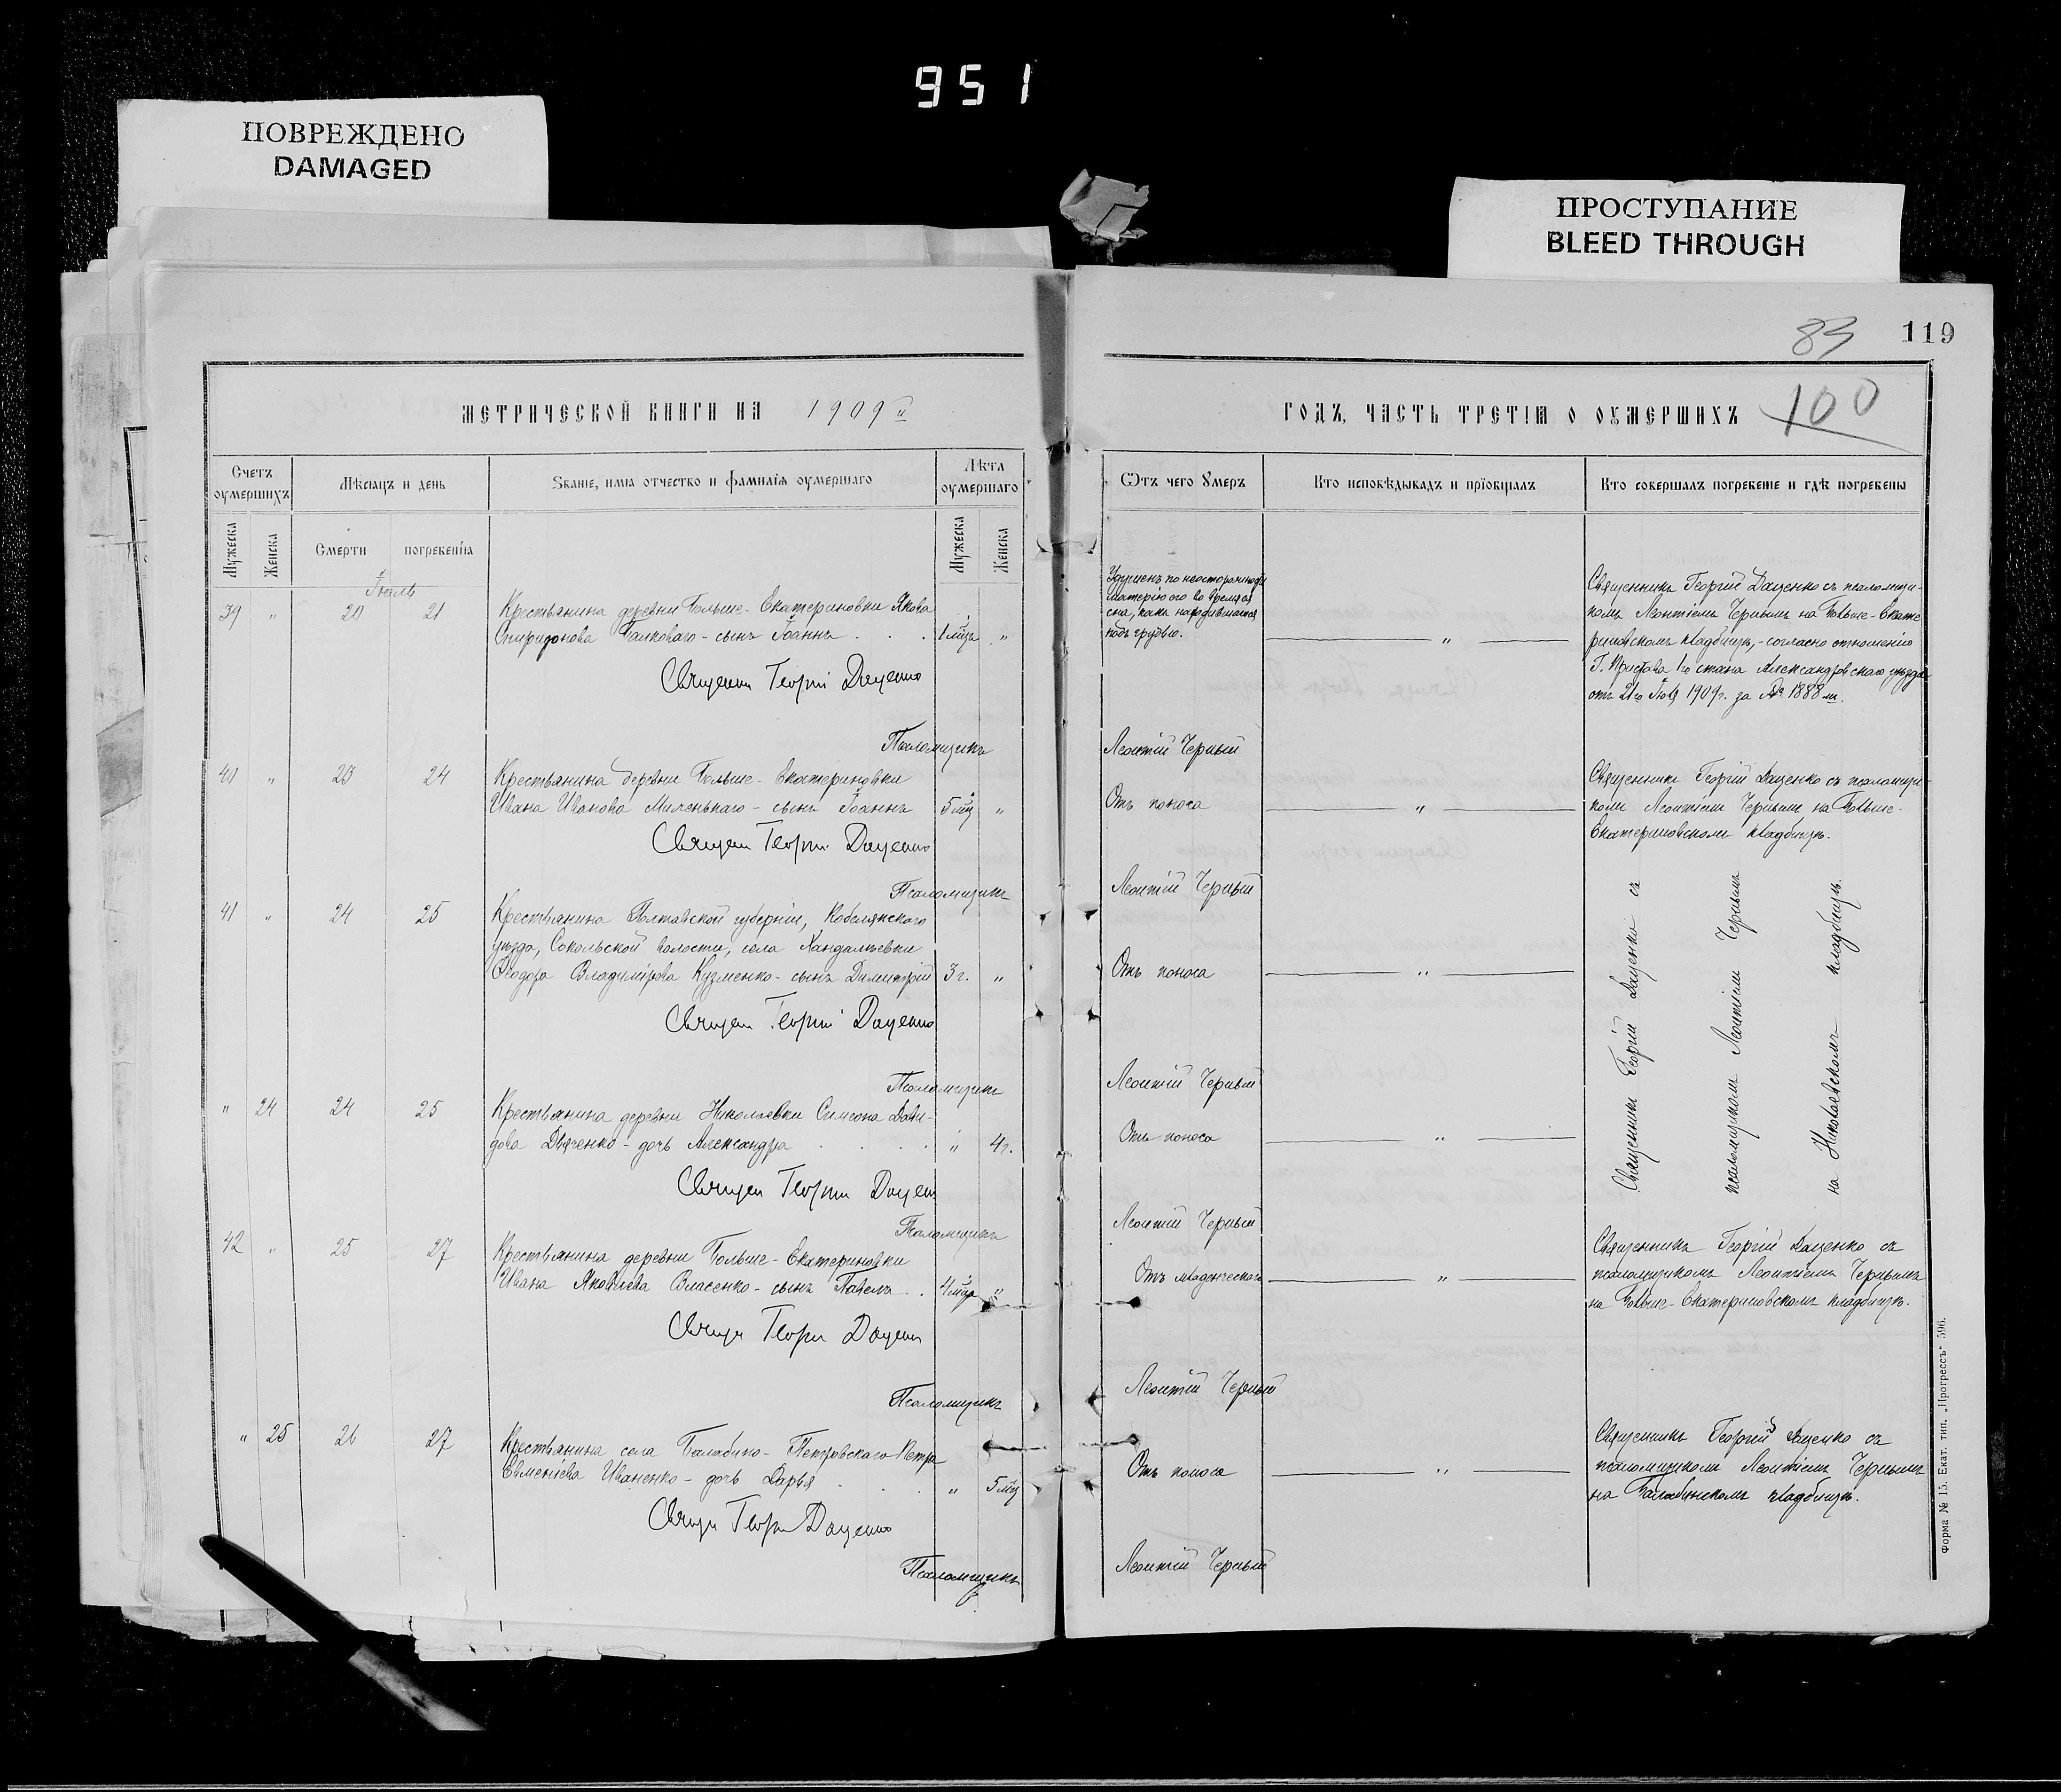 951
ПОВРЕЖДЕНО
DAMAGED
ПРОСТУПАНИЕ
BLEED THROUGH
83
119
100
МЕТРИЧЕСКОЙ КНИГИ НА 1909й
ГОДЪ, ЧАСТЬ ТРЕТІѦ О ОУМЕРШИХЪ
Счетъ оумершихъ
Мѣсяцъ и день
Званіе, имѧ отчество и фамиліѧ оумершаго
Лѣта оумершаго
Ѿтъ чего Умеръ
Кто исповѣдывалъ и пріобщалъ
Кто совершалъ погребеніе и гдѣ погребены
Мужеска
Женска
Смерти
погребеніѧ
Мужеска
Женска
Іюль
39 " 20 21 Крестьянина деревни Больше-Екатериновки Якова
Спиридонова Галковаго - сынъ Іоаннъ . . . 1 мѣс. "
Священ Георгій Даценко
Псаломщикъ
Удушенъ по неосторожности
матерію его во время ея
сна, какъ находившагося
подъ грудью.
"
Священникъ Георгій Даценко съ псаломщи-
комъ Леонтіемъ Чернымъ на Больше-Екате
риновскомъ кладбищѣ, - согласно отношенію
Г. Пристава 1го стана Александровскаго уѣзда
отъ 21го Іюля 1909г. за № 1888м.
Леонтій Черный
40 " 23 24 Крестьянина деревни Больше-Екатериновки
Ивана Иванова Миленькаго - сынъ Іоаннъ 5 мѣс "
Священ Георгій Даценко
Псаломщикъ
Отъ поноса
"
Священникъ Георгій Даценко съ псаломщи-
комъ Леонтіемъ Чернымъ на Больше-
Екатериновскомъ кладбищѣ.
Леонтій Черный
41 " 24 25 Крестьянина Полтавской губерніи, Кобелякскаго
уѣзда, Сокольской волости, села Хандалѣевки
Ѳеодора Владимірова Кузменко - сынъ Димитрій 3 г. "
Священ Георгій Даценко
Псаломщикъ
Отъ поноса
"
Священникъ Георгій Даценко съ
псаломщикомъ Леонтіемъ Чернымъ
на Николаевскомъ кладбищѣ.
Леонтій Черный
" 24 24 25 Крестьянина деревни Николаевки Симеона Дави-
дова Дяченко - дочь Александра . . . . " 4 г.
Священ Георгій Даценко
Псаломщикъ
Отъ поноса
"
Леонтій Черный
42 " 25 27 Крестьянина деревни Больше-Екатериновки
Ивана Яковлева Власенко - сынъ Павелъ . . 4 мѣс "
Священ Георгій Даценко
Псаломщикъ
Отъ младенческаго
"
Священникъ Георгій Даценко съ
псаломщикомъ Леонтіемъ Чернымъ
на Больше-Екатериновскомъ кладбищѣ.
Леонтій Черный
" 25 26 27 Крестьянина села Балабино-Петровскаго Петра
Евменіева Иваненко - дочь Дарья . . . " 5 мѣс
Священ Георгій Даценко
Псаломщикъ
Отъ поноса
"
Священникъ Георгій Даценко съ
псаломщикомъ Леонтіемъ Чернымъ
на Балабинскомъ кладбищѣ.
Леонтій Черный
Форма № 15. Екат. тип. „Прогрессъ" 596.